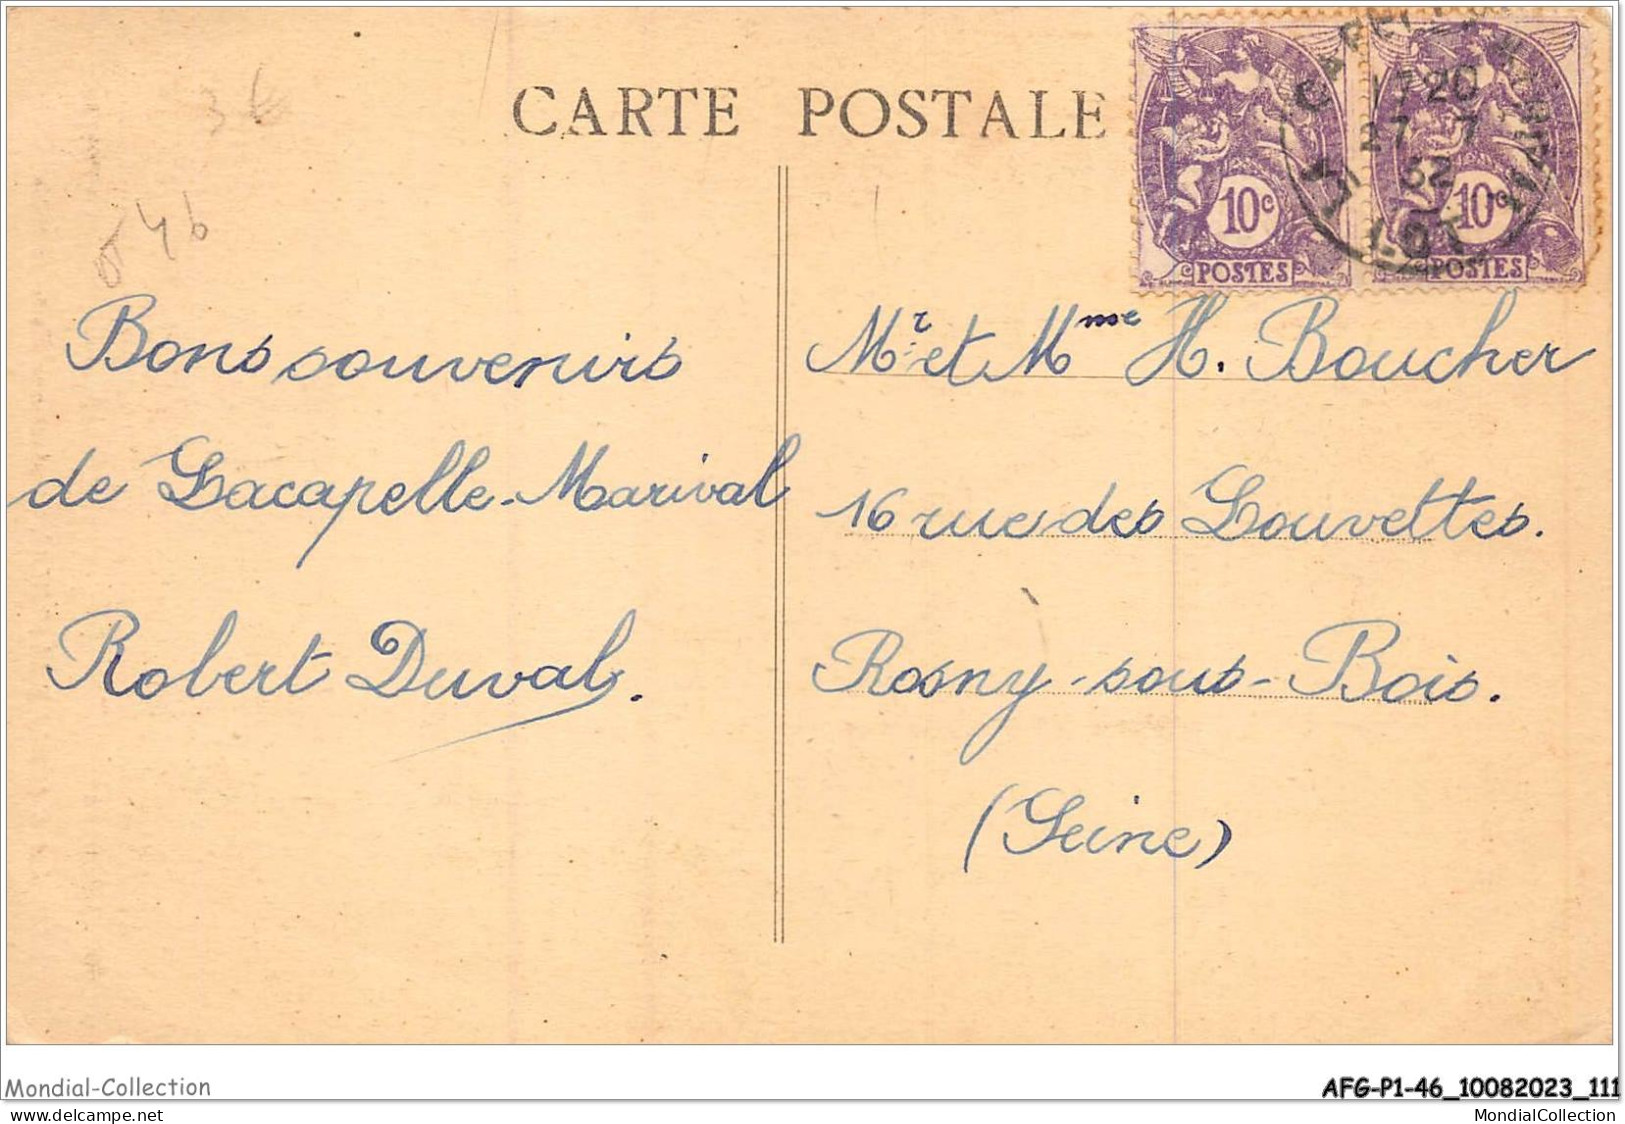 CARTE POSTALE
3€
46
10c
POSTES
10c
POSTES
LACAPELLE MARIVAL
17 20
27 - 7
32
LOT
Bons souvenirs
de Lacapelle-Marival
Robert Duval.
Mr et Mme H. Boucher
16 rue des Louvettes.
Rosny-sous-Bois.
(Seine)
Mondial-Collection
AFG-P1-46_10082023_111
delcampe.net
MondialCollection